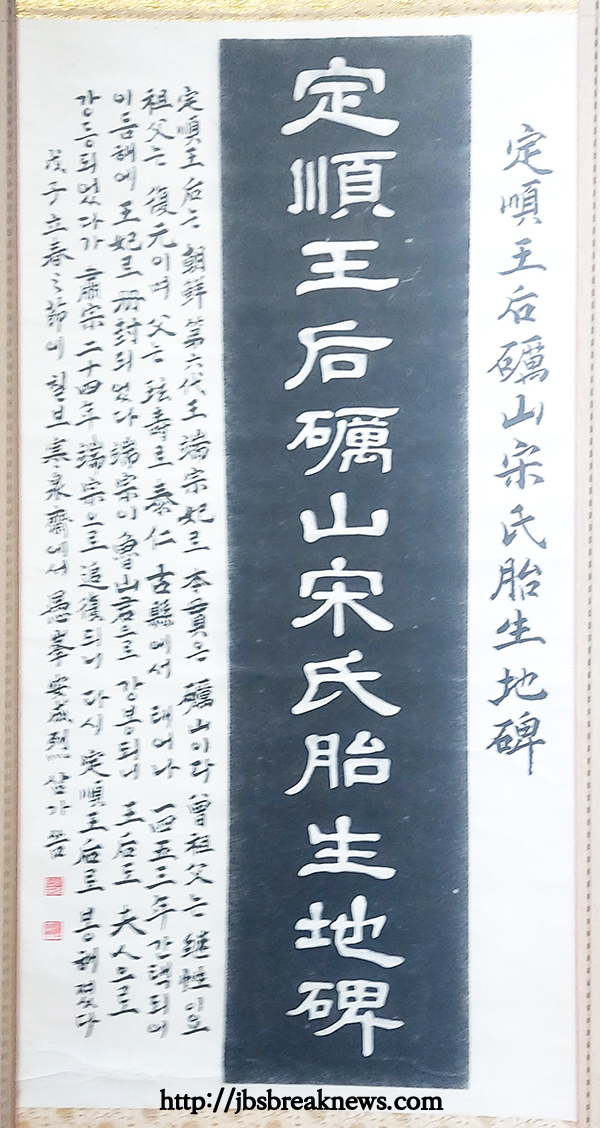 定順王后礪山宋氏胎生地碑
定順王后礪山宋氏胎生地碑
定順王后는 朝鮮 第六代王 端宗妃로 本貫은 礪山이라 曾祖父는 継性이요
祖父는 復元이며 父는 玹壽로 泰仁 古縣에서 태어나 一四五三年 간택되어
이듬해에 王妃로 冊封되었다 端宗이 魯山君으로 강봉되니 王后도 夫人으로
강등되었다가 肅宗 二十四年 端宗으로 追復되니 다시 定順王后로 봉해졌다
戊子立春之節에 칠보 寒泉齋에서 愚峯 安成烈 삼가 씀
http://jbsbreaknews.com